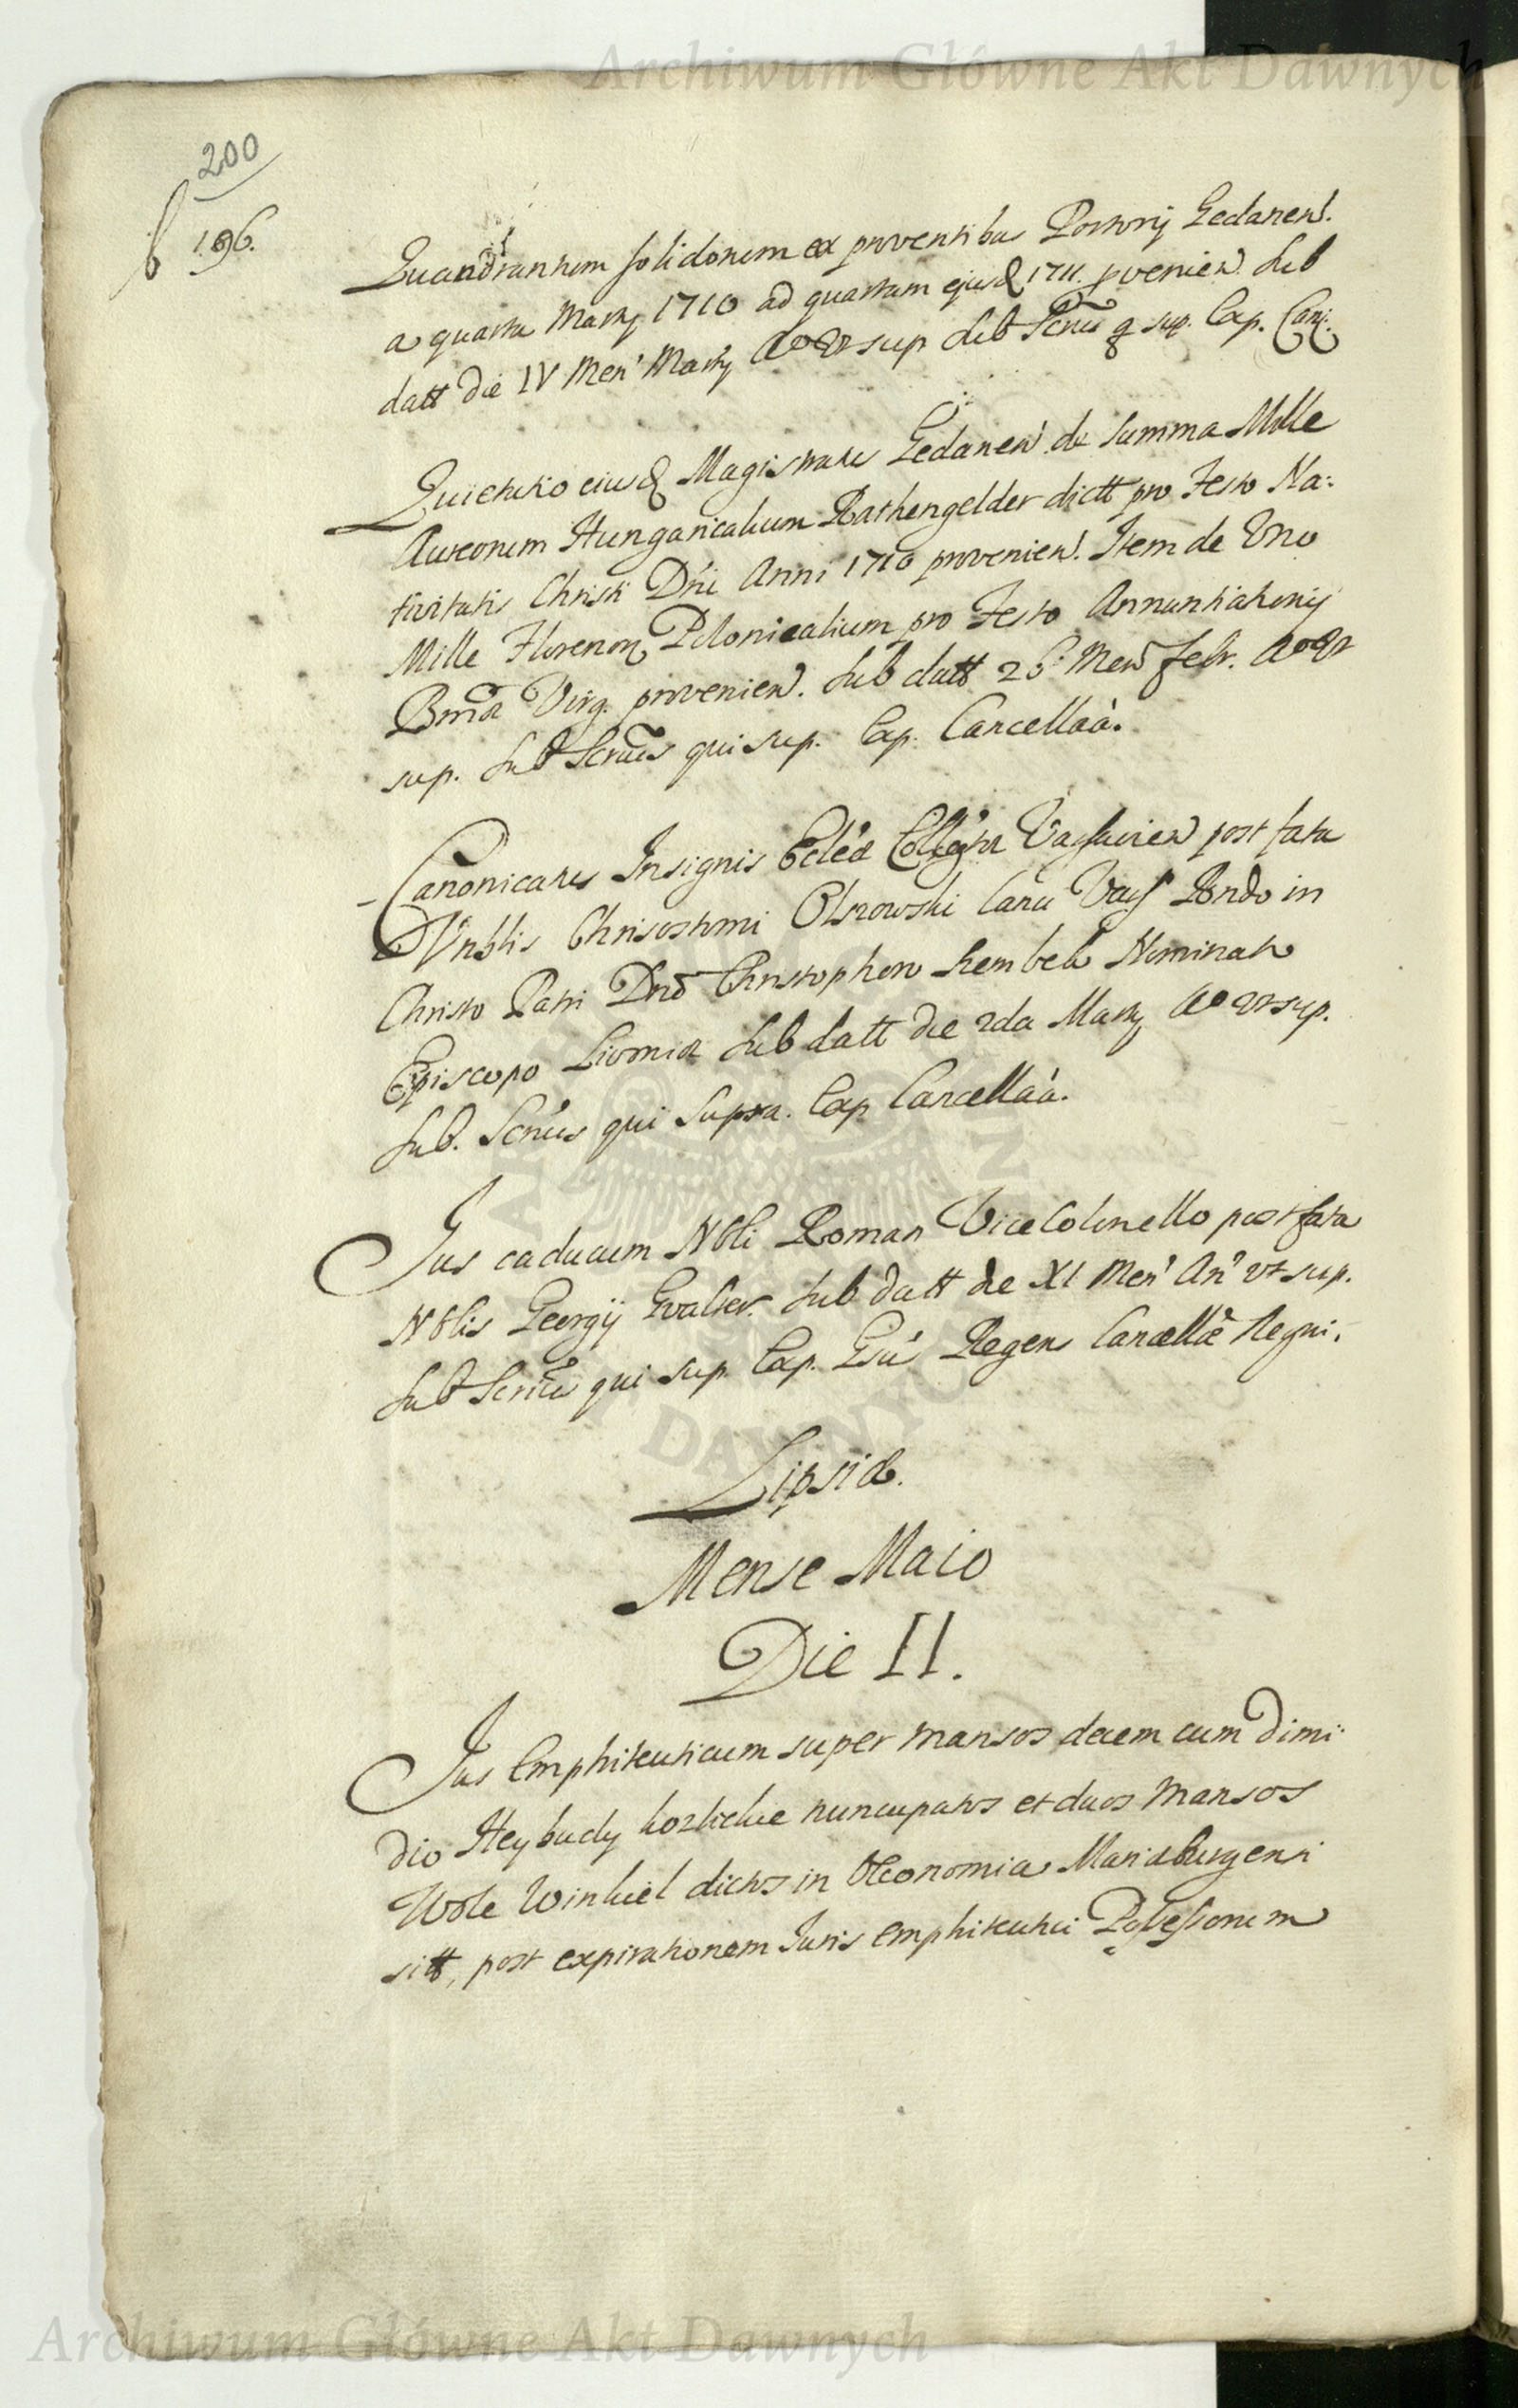 Archiwum Główne Akt Dawnych
200
b 196.
Quandrantum solidorum ex proventibus Portorij Gedanen.
a quarta Martij 1710 ad quartam ejusd 1711. pvenien. Sub
datt die IV Men Martij Aõ Ut sup Sub Scrius q sup. Cap. Canc.
Quietatio eiusd Magistratui Gedanen de Summa Mille
Aureorum Hungaricalium Rathengelder dictt pro Festo Na:
tivitatis Christi Dni Anni 1710 provenien. Item de Uno
Mille Florenor Polonicalium pro Festo Annuntiationis
Bmæ Virg. provenien. Sub datt 26 Men Febr. Aõ Ut
sup. Sub Scrius qui sup. Cap. Cancellaa.
Canonicatus Insignis Eclæ Collegtæ Varsavien post fata
Vnblis Chrisostomi Olszowski Canci Vars Rondo in
Christo Patri Dno Christophoro Szembek Nominato
Episcopo Livoniæ Sub datt die 2da Martij Aõ Ut sup.
Sub. Scrius qui Supra. Cap Cancellaa.
Jus caducum Nbli Roman Vice Colonello post fata
Nblis Georgij Gvalter. Sub datt die XI Men An ut sup.
Sub Scrius qui sup. Cap. Gsu Regen Cancellæ Regni.
Lipsiæ.
Mense Maio
Die II.
Jus Emphiteuticum super mansos decem cum Dimi
dio Heybudy nuncupatos et duos Mansos
Wole Winkiel dictos in Oeconomia Mariæburgensi
sitt, post expirationem Juris emphiteutici Possessorum
Archiwum Główne Akt Dawnych